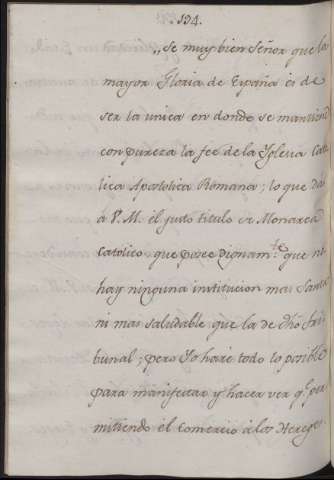 134.
„Se muy bien Señor que la
mayor Gloria de España es de
ser la unica en donde se mantiene
con pureza la fee de la Yglesia Cato
lica Apostolica Romana; lo que da
á V. M. el justo titulo de Monarca
Catolico que posee dignam.te que no
hay ninguna institucion mas Santa
ni mas saludable que la de dho Tri
bunal; pero Yo haré todo lo posible
para manifestar y hacer ver q.e per
mitiendo el Comercio á los Hereges